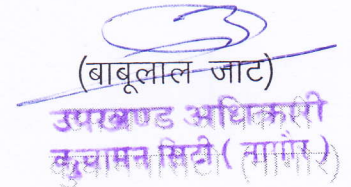 (बाबूलाल जाट)
उपखण्ड अधिकारी
कुचामन सिटी ( नागौर )